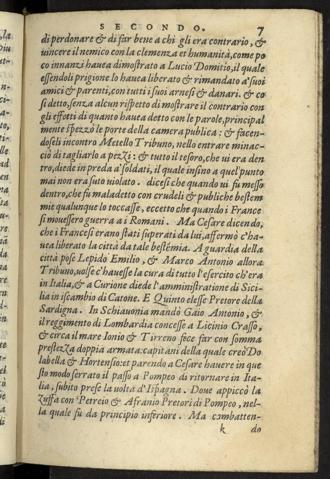 SECONDO. 7
di perdonare & di far bene a chi gli era contrario, &
uincere il nemico con la clemenza et humanità, come po
co innanzi hauea dimostrato a Lucio Domitio, il quale
essendoli prigione lo hauea liberato & rimandato a'suoi
amici & parenti, con tutti i suoi arnesi & danari. & co
sì detto, senza alcun rispetto di mostrare il contrario con
gli effetti di quanto hauea detto con le parole, principal
mente spezzò le porte della camera publica: & facen-
doseli incontro Metello Tribuno, nello entrare minac-
ciò di tagliarlo a pezzi: & tutto il tesoro, che ui era den
tro, diede in preda a'soldati, il quale insino a quel punto
mai non era suto uiolato. dicesi che quando ui fu messo
dentro, che fu maladetto con crudeli & publiche bestem
mie qualunque lo toccasse, eccetto che quando i France
si mouessero guerra a i Romani. Ma Cesare dicendo,
che i Francesi erano stati superati da lui, affermò c'ha-
uea liberato la città da tale bestemia. A guardia della
città pose Lepido Emilio, & Marco Antonio allora
Tribuno, uolse c'hauesse la cura di tutto l'esercito ch'era
in Italia, & a Curione diede l'amministratione di Sici-
lia in iscambio di Catone. E Quinto elesse Pretore della
Sardigna. In Schiauonia mandò Gaio Antonio, &
il reggimento di Lombardia concesse a Licinio Crasso,
& circa il mare Ionio & Tirreno fece far con somma
prestezza doppia armata: capitani della quale creò Do
labella & Hortensio: et parendo a Cesare hauere in que
sto modo serrato il passo a Pompeo di ritornare in Ita-
lia, subito prese la uolta d'Ispagna. Doue appiccò la
zuffa con Petreio & Afranio Pretori di Pompeo, nel-
la quale fu da principio inferiore. Ma combatten-
k do